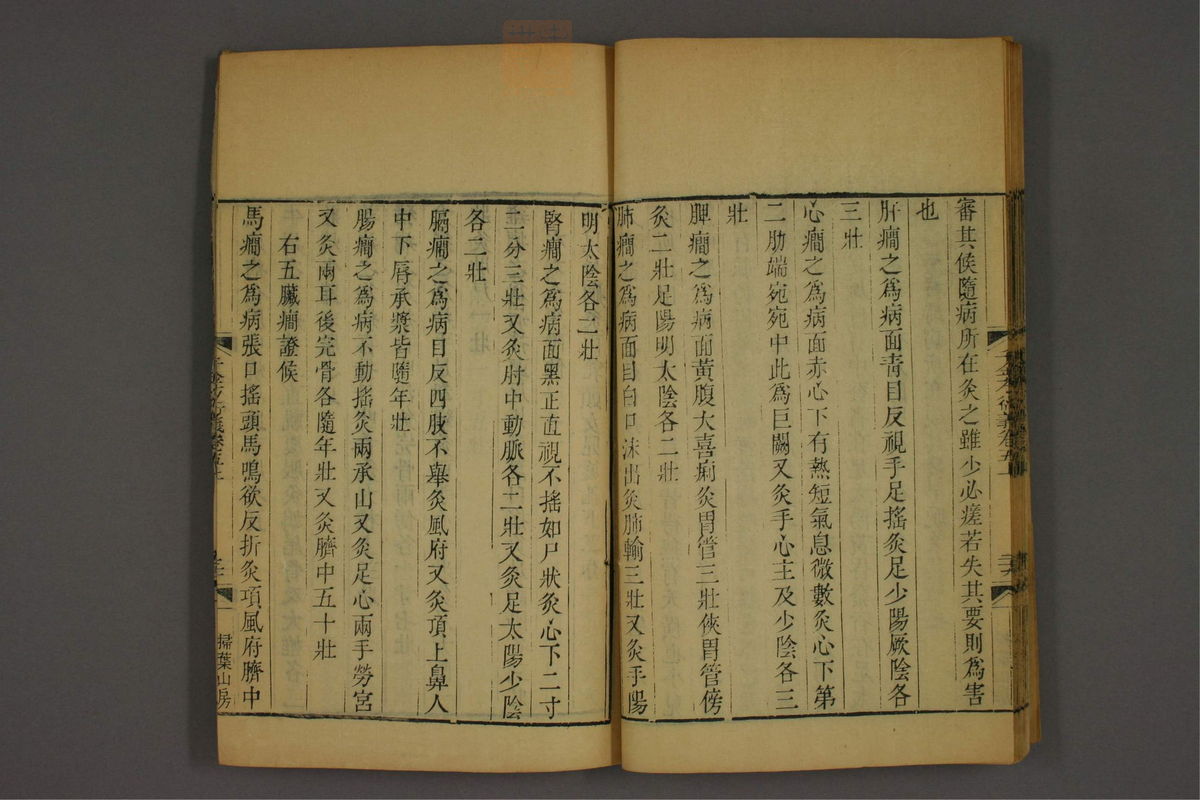 審其候隨病所在灸之雖少必瘥若失其要則爲害
也
肝癎之爲病面青目反視手足搖灸足少陽厥陰各
三壯
心癎之爲病面赤心下有熱短氣息微數灸心下第
二肋端宛宛中此爲巨闕又灸手心主及少陰各三
壯
脾癎之爲病面黃腹大喜痢灸胃管三壯俠胃管傍
灸二壯足陽明太陰各二壯
肺癎之爲病面目白口沫出灸肺輸三壯又灸手陽
明太陰各二壯
腎癎之爲病面黑正直視不搖如尸狀灸心下二寸
二分三壯又灸肘中動脈各二壯又灸足太陽少陰
各二壯
膈癎之爲病目反四肢不舉灸風府又灸頂上鼻人
中下脣承漿皆隨年壯
腸癎之爲病不動搖灸兩承山又灸足心兩手勞宮
又灸兩耳後完骨各隨年壯又灸臍中五十壯
右五臟癎證候
馬癎之爲病張口搖頭馬鳴欲反折灸項風府臍中
掃葉山房